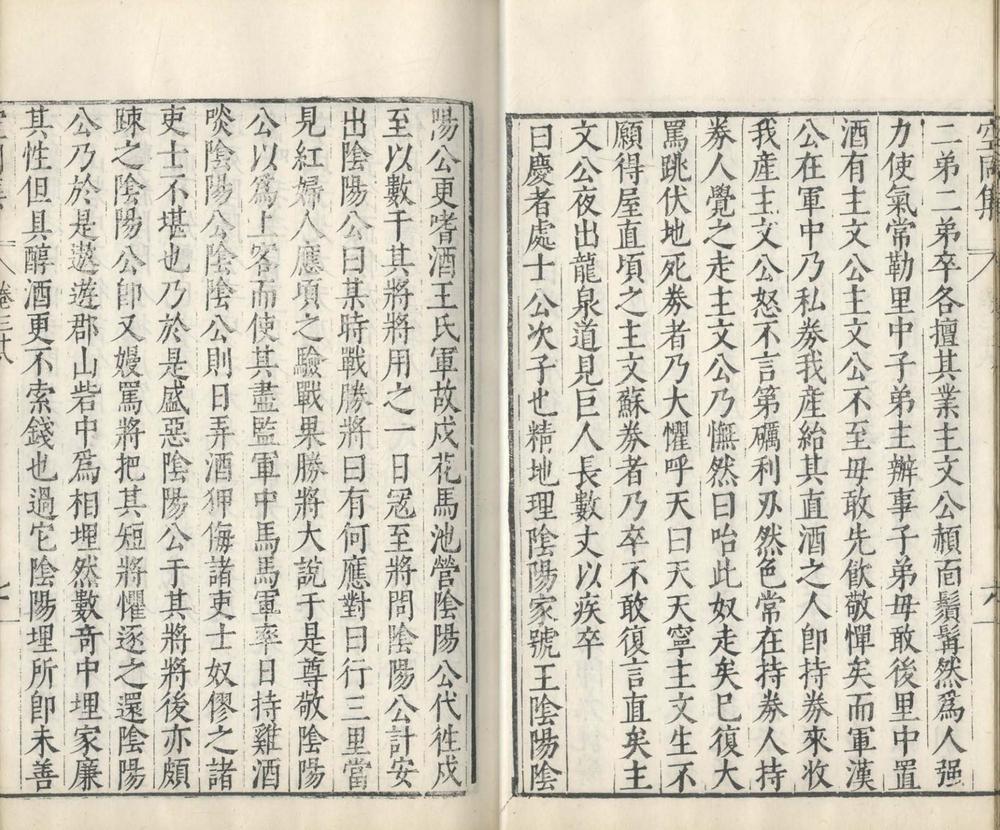 空同集
二弟二弟卒各擅其業主文公頳面鬚髯然爲人强
力使氣常勒里中子弟主辦事子弟毋敢後里中置
酒有主文公主文公不至毋敢先飲敬憚矣而軍漢
公在軍中乃私劵我產紿其直酒之人卽持劵來收
我產主文公怒不言第礪利刃然色常在持劵人持
劵人覺之走主文公乃憮然曰咍此奴走矣巳復大
罵跳伏地死劵者乃大懼呼天曰天天寧主文生不
願得屋直頃之主文蘇劵者乃卒不敢復言直矣主
文公夜出龍泉道見巨人長數丈以疾卒
曰慶者處士公次子也精地理陰陽家號王陰陽陰
陽公更嗜酒王氏軍故戍花馬池營陰陽公代徃戍
至以數干其將將用之一日寇至將問陰陽公計安
出陰陽公曰某時戰勝將曰有何應對曰行三里當
見紅婦人應頃之驗戰果勝將大說于是尊敬陰陽
公以爲上客而使其盡監軍中馬馬軍率日持雞酒
啖陰陽公陰陰公則日弄酒狎侮諸吏士奴僇之諸
吏士不堪也乃於是盛惡陰陽公于其將將後亦頗
踈之陰陽公卽又嫚罵將把其短將懼逐之還陰陽
公乃於是遨遊郡山砦中爲相埋然數奇中埋家廉
其性但具醇酒更不索錢也過它陰陽埋所卽未善
卷三十八